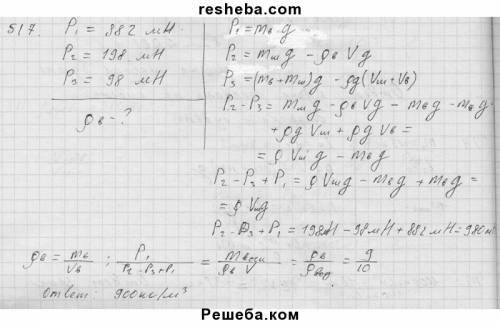 resheba.com
517. P₁ = 882 мН
P₂ = 198 мН
P₃ = 98 мН
ρв - ?
P₁ = mв g
P₂ = mш g - ρв Vg
P₃ = (mв + mш)g - ρg(Vш + Vв)
P₂ - P₃ = mш g - ρв Vg - mв g - mв g
+ ρg Vш + ρg Vв =
= ρ Vш g - mв g
P₂ - P₃ + P₁ = ρ Vш g - mв g + mв g =
= ρ Vш g
P₂ - P₃ + P₁ = 198мН - 98мН + 882 мН = 980 м
ρв = mв/Vв ; P₁/(P₂ - P₃ + P₁) = / ρв V = ρв/ρвод = 9/10
Ответ: 900 кг/м³
Решеба.ком